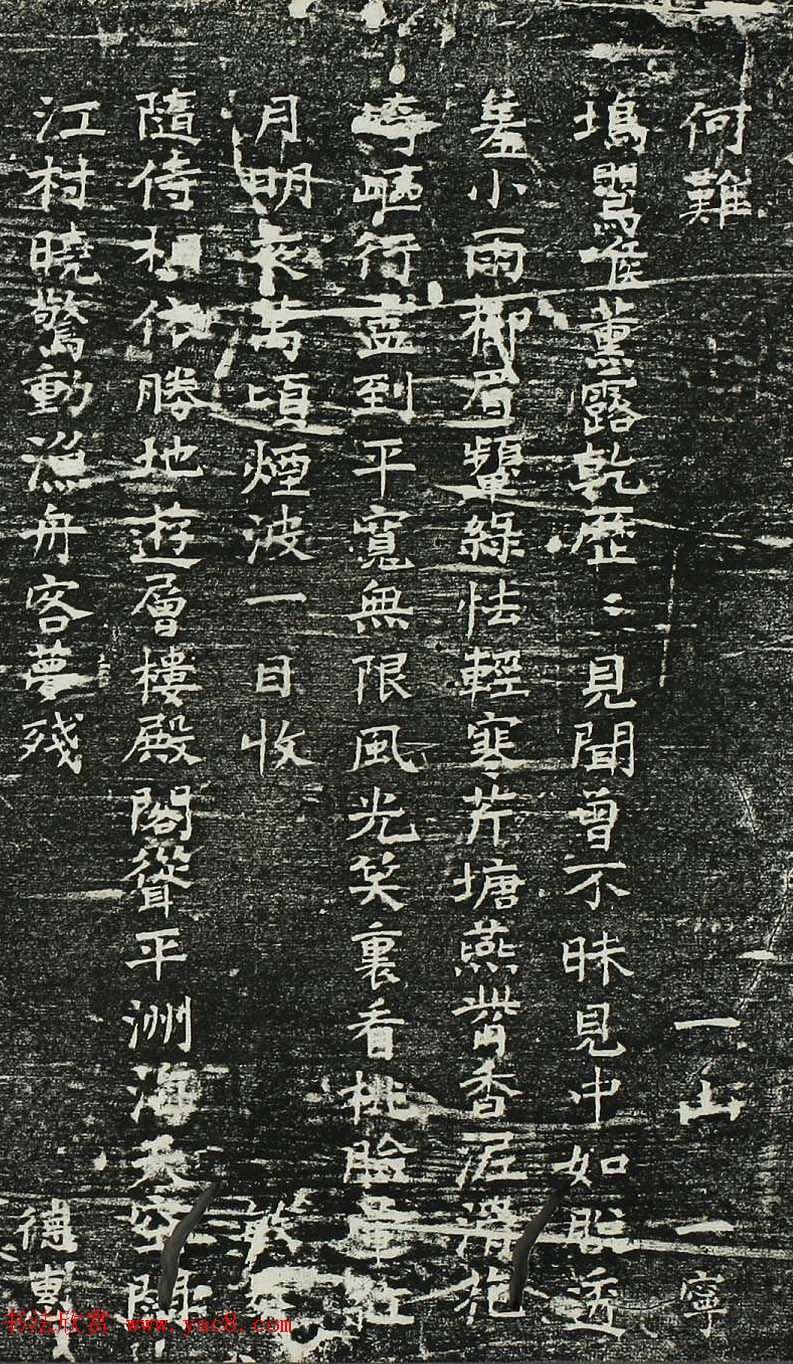 何難 一山一寧
塢鶯藏薰露乾歷〻見聞曾不昧見中如能透
羞小雨柳眉顰綠怯輕寒芹塘燕觜香泥滑
崎嶇行盡到平寬無限風光笑裏看桃臉暈紅
月明夜萬頃煙波一目收
隨侍相依勝地遊層樓殿閣聳平洲海天空
江村曉驚動漁舟客夢殘
書法欣赏 www.yac8.com